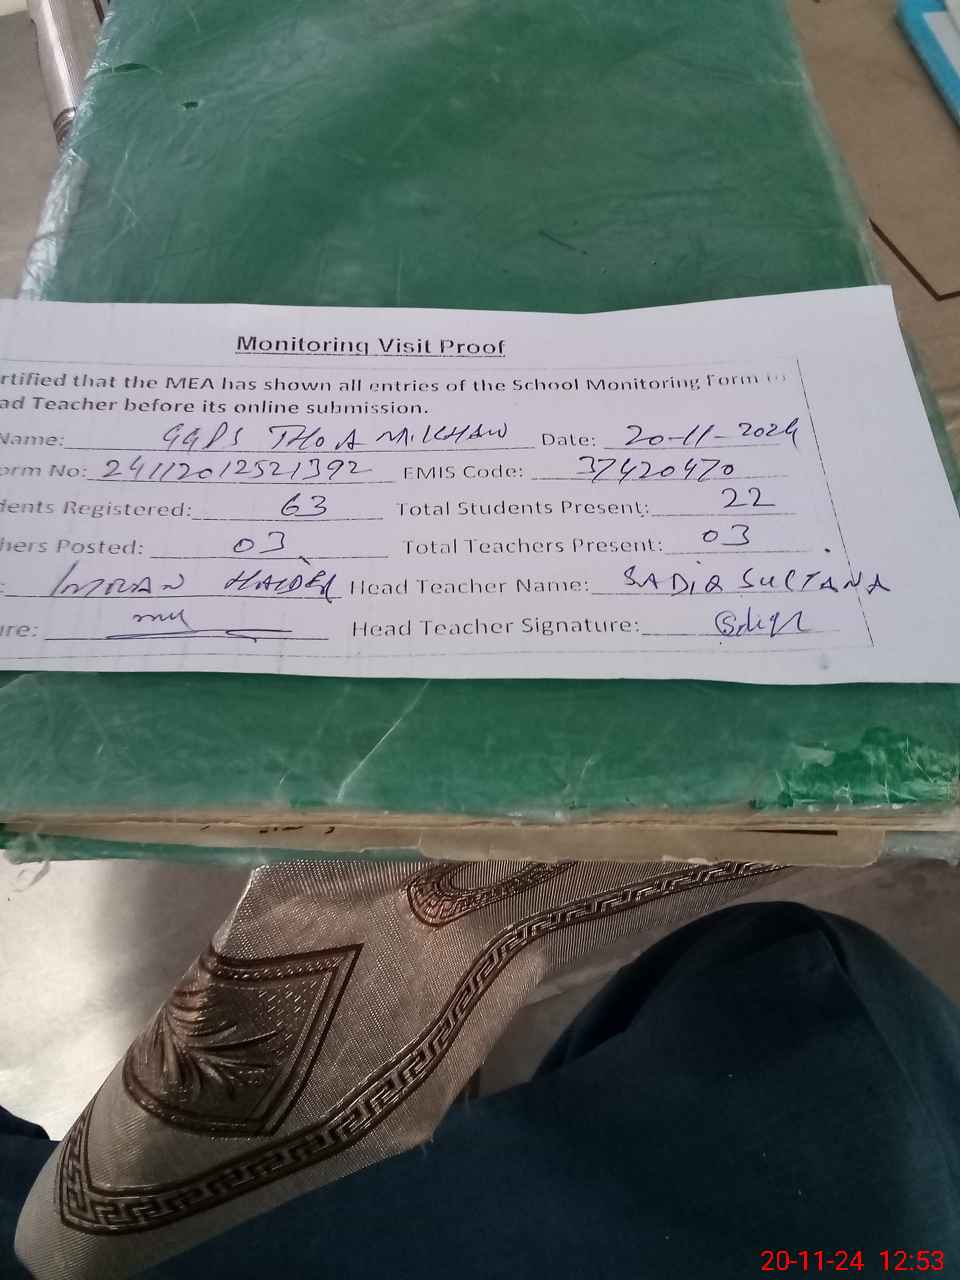 Monitoring Visit Proof
rtified that the MEA has shown all entries of the School Monitoring Form to
ad Teacher before its online submission.
Name: GGPS THOA M.KHAN Date: 20-11-2024
orm No: 24112012521392 EMIS Code: 37420470
dents Registered: 63 Total Students Present: 22
hers Posted: 03 Total Teachers Present: 03
: IMRAN HAIDER Head Teacher Name: SADIA SULTANA
ure: Head Teacher Signature:
20-11-24 12:53